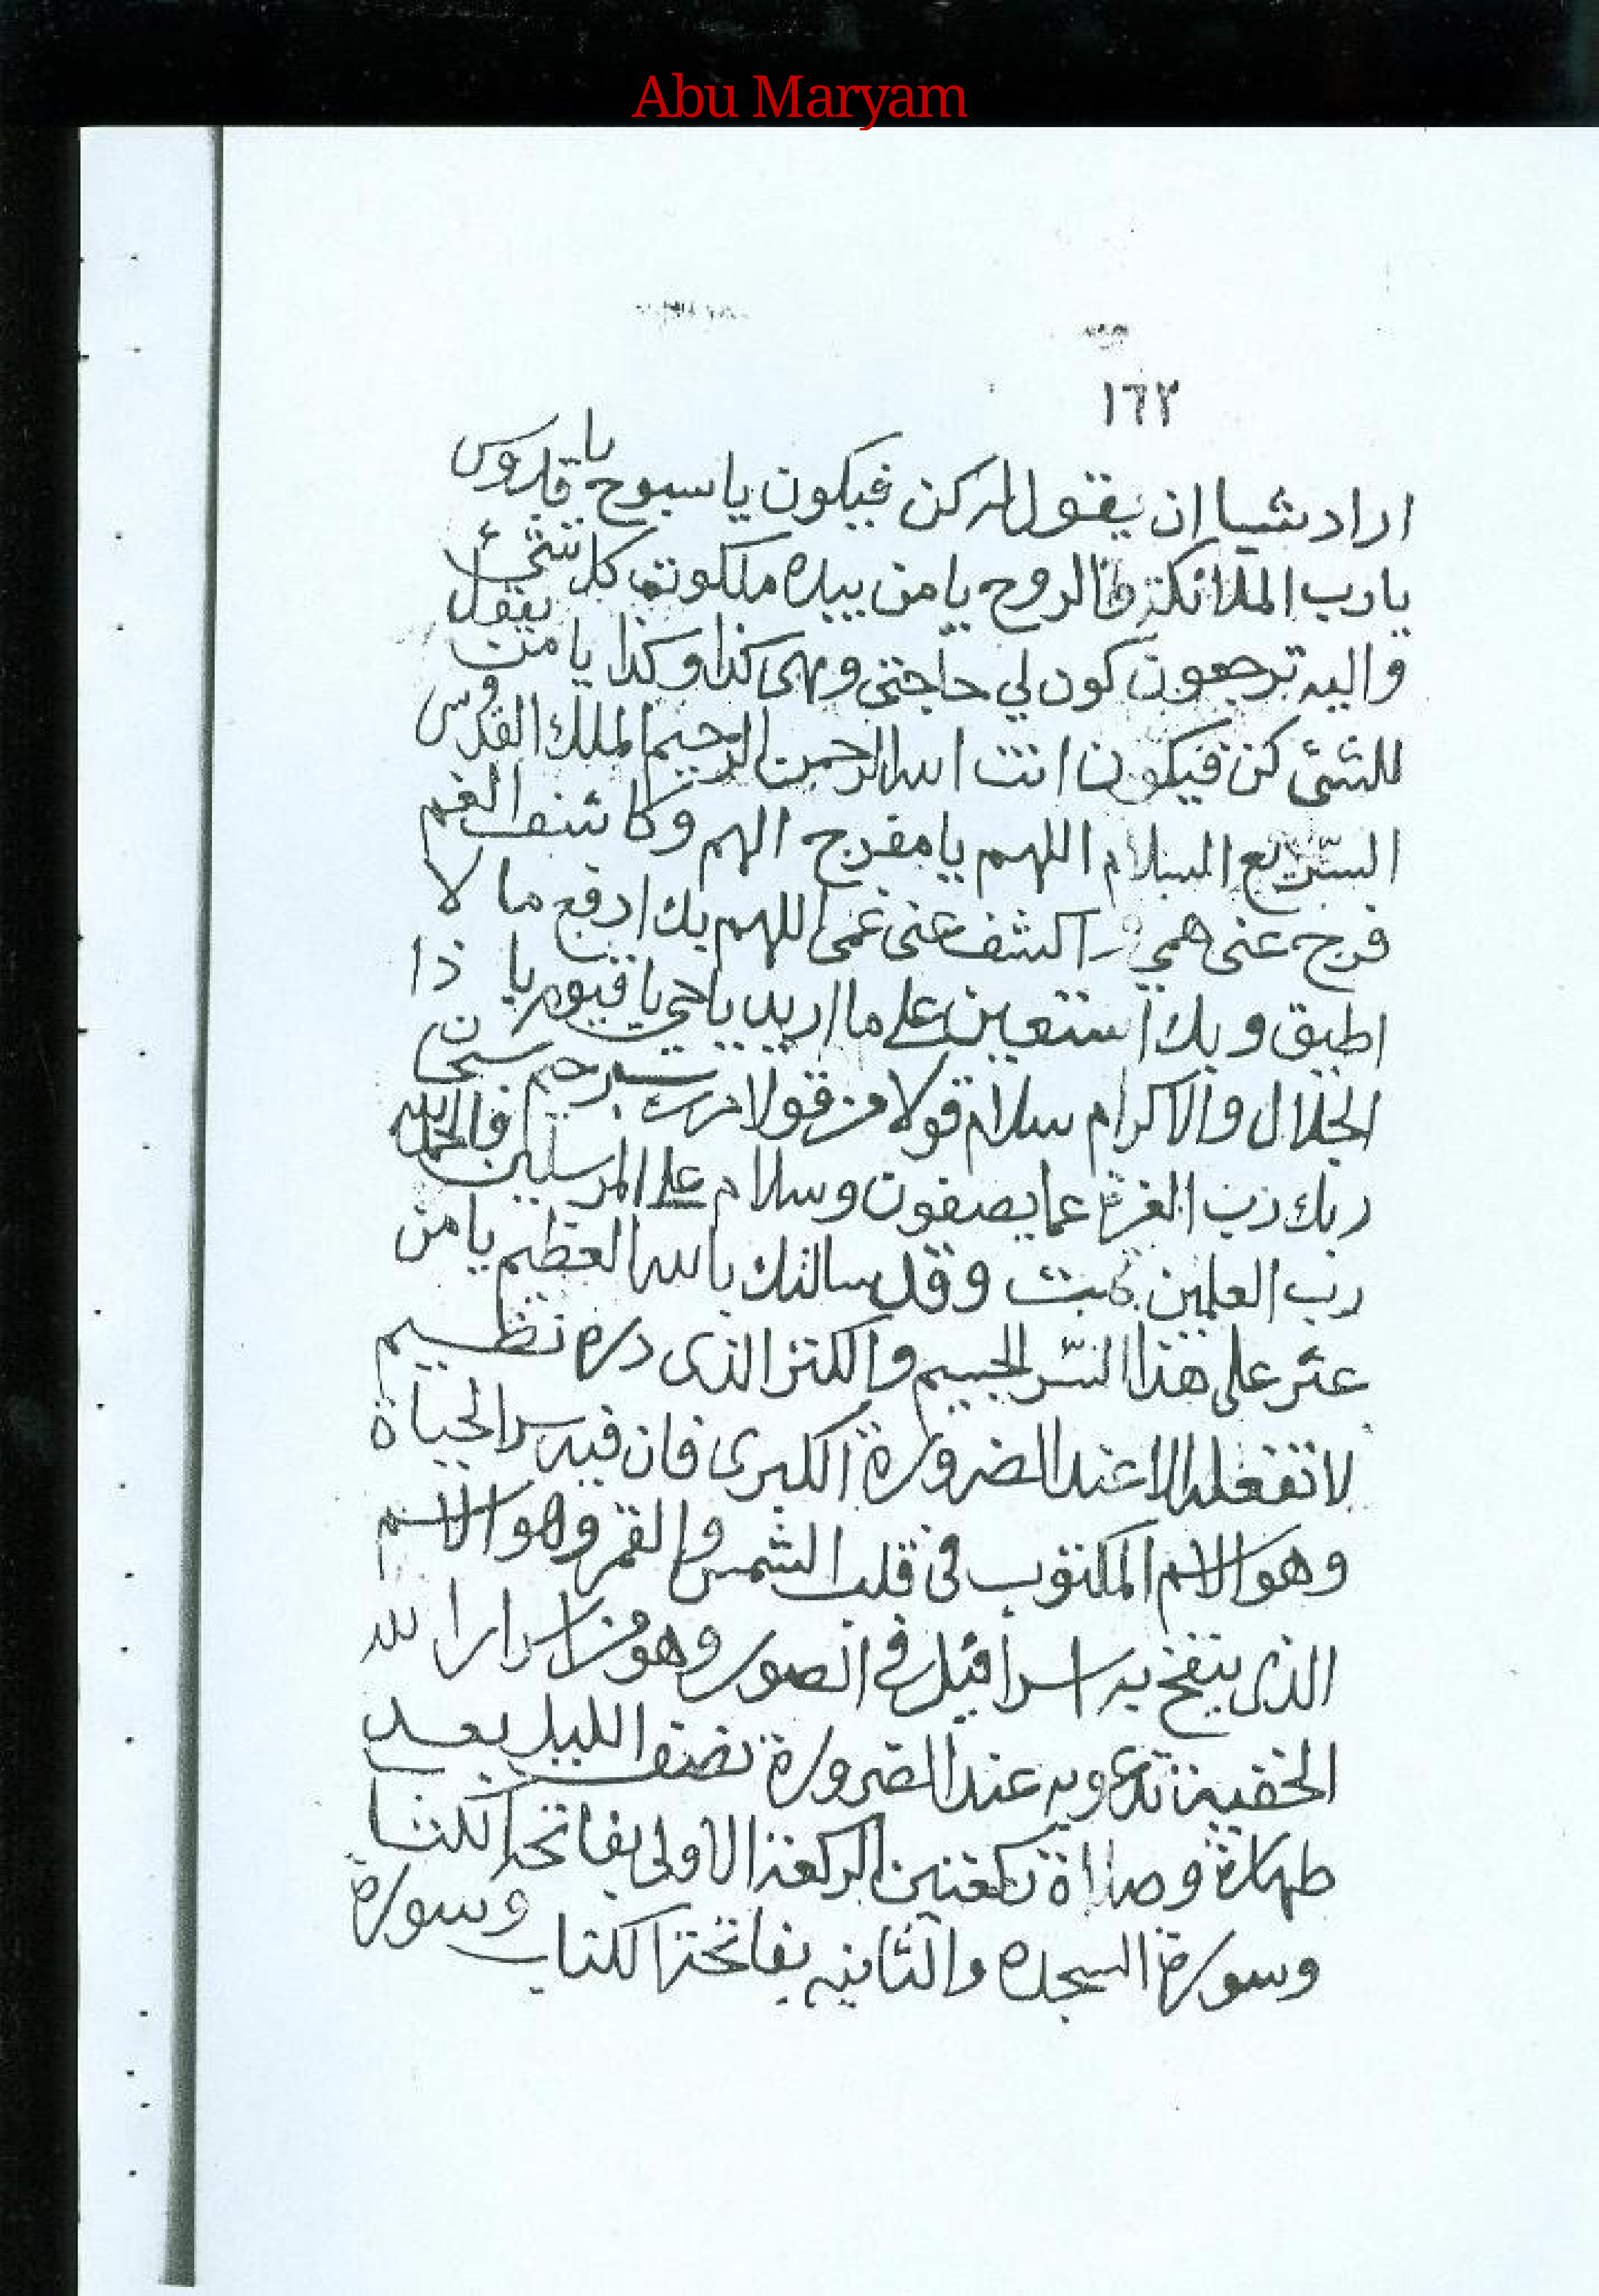 Abu Maryam
١٦٢
اراد شيا ان يقول له كن فيكون يا سبوح يا قدوس
يا رب الملائكة والروح يا من بيده ملكوت كل شئ
واليه ترجعون كون لي حاجتى وهى كذا وكذا يا من يقول
للشئ كن فيكون انت الله الرحمن الرحيم الملك القدوس
السريع السلام اللهم يا مفرج الهم وكاشف الغم
فرج عنى همي و اكشف عنى غمى اللهم بك ادفع ما لا
اطيق وبك استعين على ما اريد يا حي يا قيوم يا ذا
الجلال والاكرام سلام قولا من رب رحيم سبحان
ربك رب العزة عما يصفون وسلام على المرسلين والحمد لله
رب العلمين تمت وقد سالتك بالله العظيم يا من
عثر على هذا السّر الجسيم والكنز الذى دره نظيم
لا تفعله الا عند الضرورة الكبرى فان فيه سر الحياة
وهو الاسم المكتوب فى قلب الشمس والقمر وهو الاسم
الذى ينفخ به اسرافيل في الصور وهو من اسرار الله
الخفية تدعو به عند الضرورة نصف الليل بعد
طهارة وصلاة ركعتين الركعة الاولى بفاتحة الكتاب
وسورة السجده والثانيه بفاتحة الكتاب وسورة